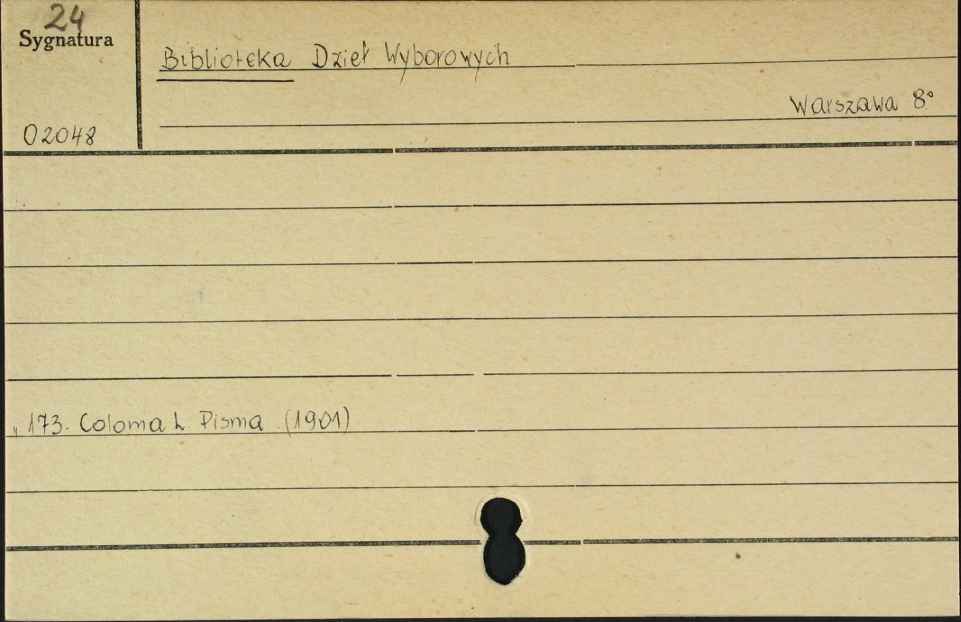 24
Sygnatura
Biblioteka Dzieł Wyborowych
Warszawa 8°
02048
„ 173. Coloma L Pisma (1901)